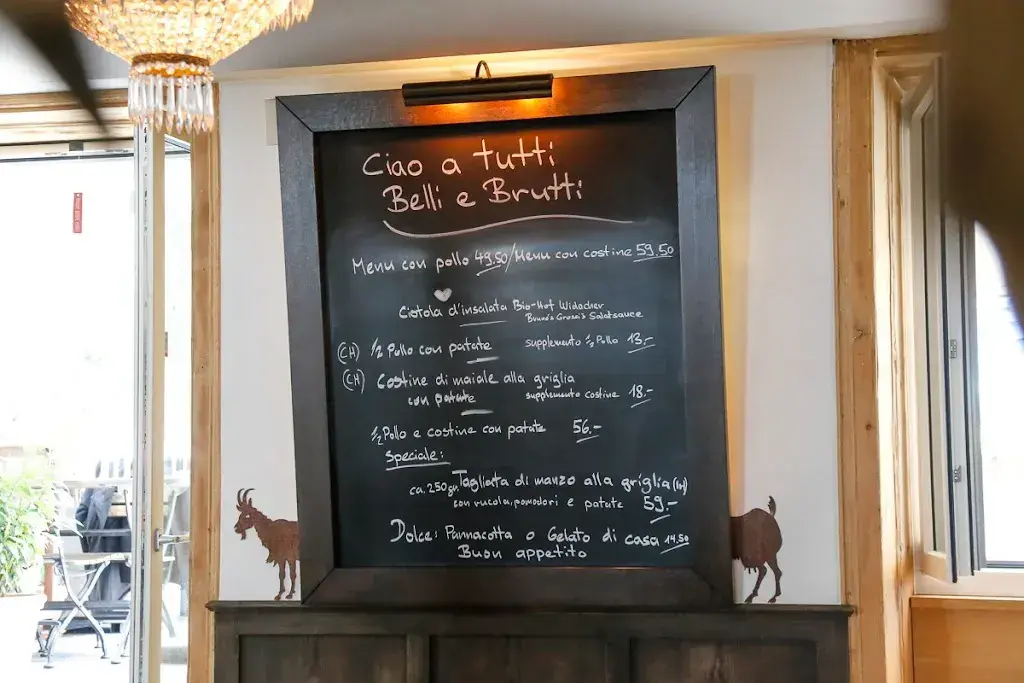 Ciao a tutti
Belli e Brutti
Menu con pollo 49.50/Menu con costine 59.50
Ciotola d'insalata Bio-Hof Widacher
Bruno's Salatsauce
(CH) 1/2 Pollo con patate supplemento 1/2 Pollo 13.-
(CH) Costine di maiale alla griglia
con patate supplemento costine 18.-
1/2 Pollo e costine con patate 56.-
Speciale:
ca. 250gr. Tagliata di manzo alla griglia
con rucola, pomodori e patate 59.-
Dolce: Pannacotta o Gelato di casa 14.50
Buon appetito